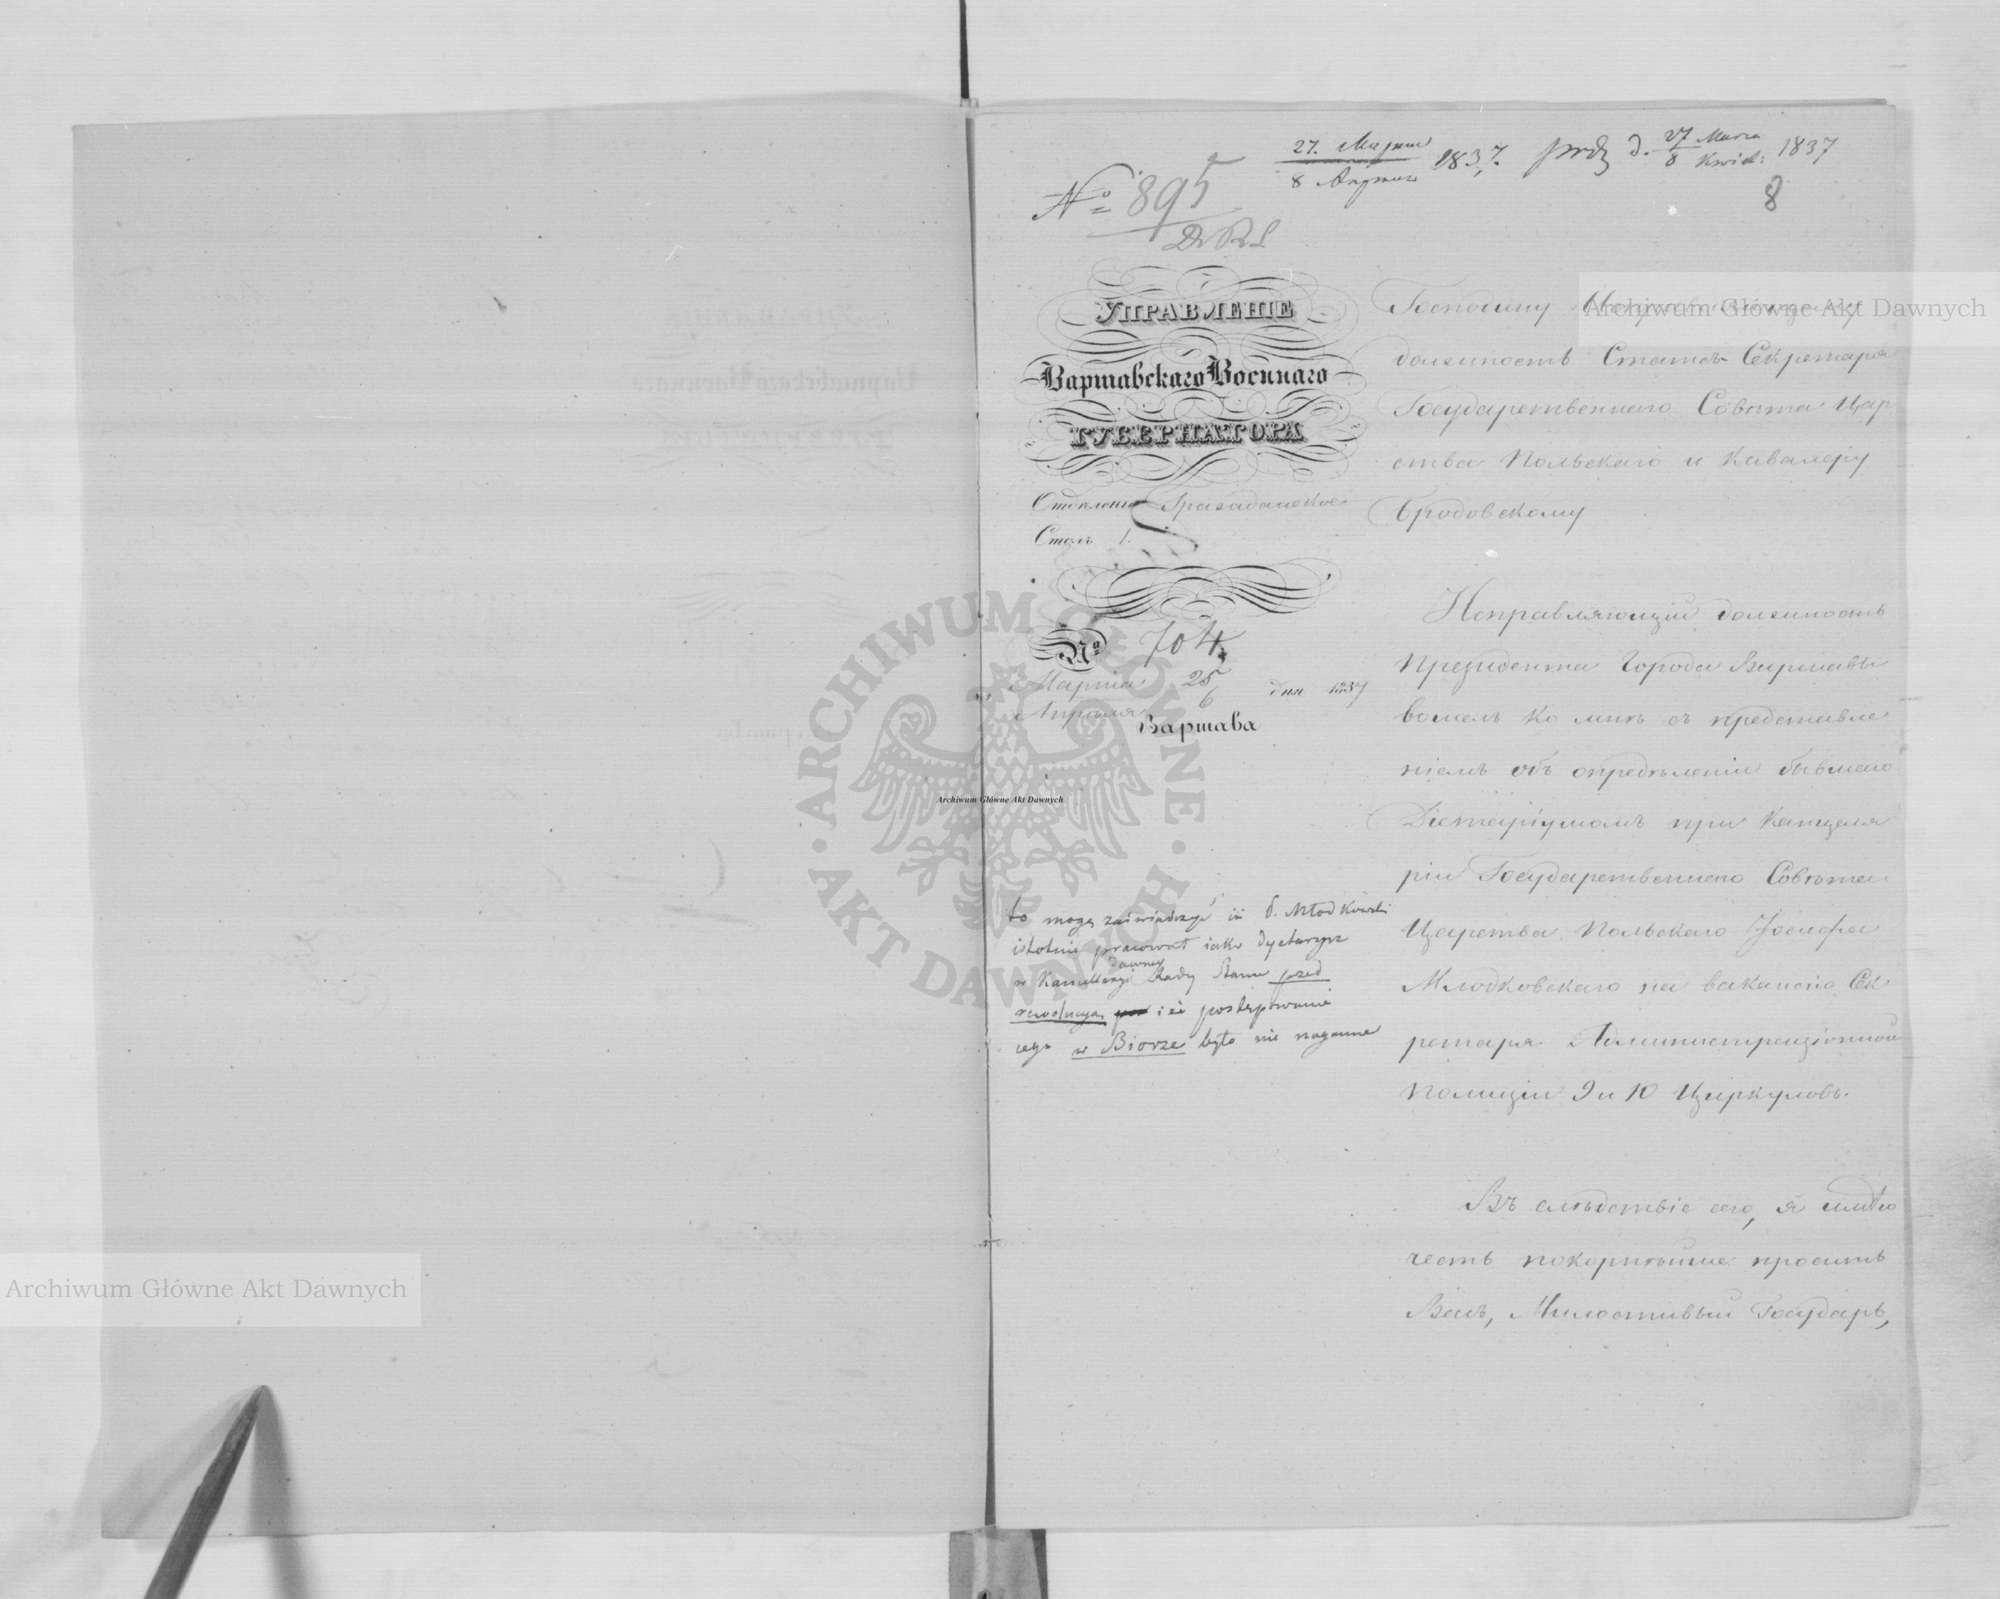 27. Марта
8 Апреля 1837. prdz d. 27 Marca
8 Kwiet: 1837
8
№ 895
УПРАВЛЕНІЕ
Варшавскаго Военнаго
ГУБЕРНАТОРА
Отделеніе Гражданское
Столъ 1.
№ 704
Марта 25
Апреля 6 дня 1837
Варшава
to mogę zaświadczyć iż P. Młodkowski
istotnie pracował iako dyetaryusz
w Kancellaryi dawney Rady Stanu przed
rewolucyą i iż postępowanie
iego w Biorze było nie naganne
Господину Исправляющему
должность Статсъ Секретаря
Государственнаго Совѣта Цар
ства Польскаго и Кавалеру
Бродовскому
Исправляющій должность
Президента Города Варшавы
вошелъ ко мнѣ съ представле
ніемъ объ опредѣленіи бывшаго
Діетаріушомъ при Канцеля
ріи Государственнаго Совѣта
Царства Польскаго Іосифа
Млодковскаго на вакансію Сек
ретаря Администраціонной
Полиціи 9 и 10 Циркуловъ.
Въ слѣдствіе сего, я имѣю
честь покорнѣйше просить
Васъ, Милостивый Государь,
Archiwum Główne Akt Dawnych
ARCHIWUM GŁÓWNE AKT DAWNYCH
Archiwum Główne Akt Dawnych
Archiwum Główne Akt Dawnych